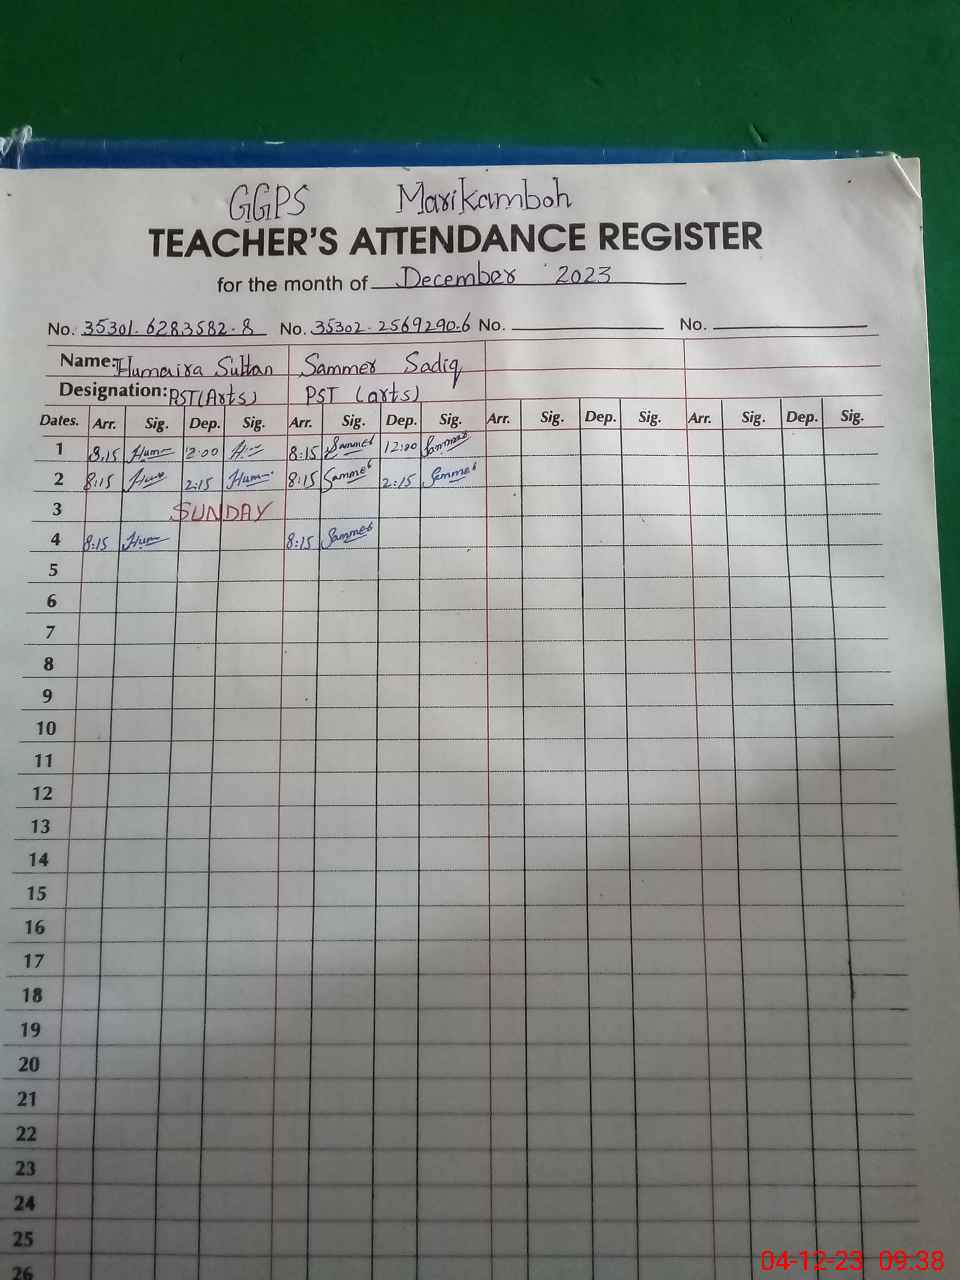 GGPS Marikamboh
TEACHER'S ATTENDANCE REGISTER
for the month of December 2023
No. 35301.6283582.8 No. 35302.2569290.6 No. No.
Name: Humaira Sultan Sammer Sadiq
Designation: PST(Arts) PST (arts)
Dates. Arr. Sig. Dep. Sig. Arr. Sig. Dep. Sig. Arr. Sig. Dep. Sig. Arr. Sig. Dep. Sig.
1 8.15 Hum 12:00 8:15 Sammer 12:00 Sammer
2 8:15 Hum 2:15 Hum 8:15 Sammer 2:15 Sammer
3 SUNDAY
4 8:15 Hum 8:15 Sammer
5
6
7
8
9
10
11
12
13
14
15
16
17
18
19
20
21
22
23
24
25
26
04-12-23 09:38